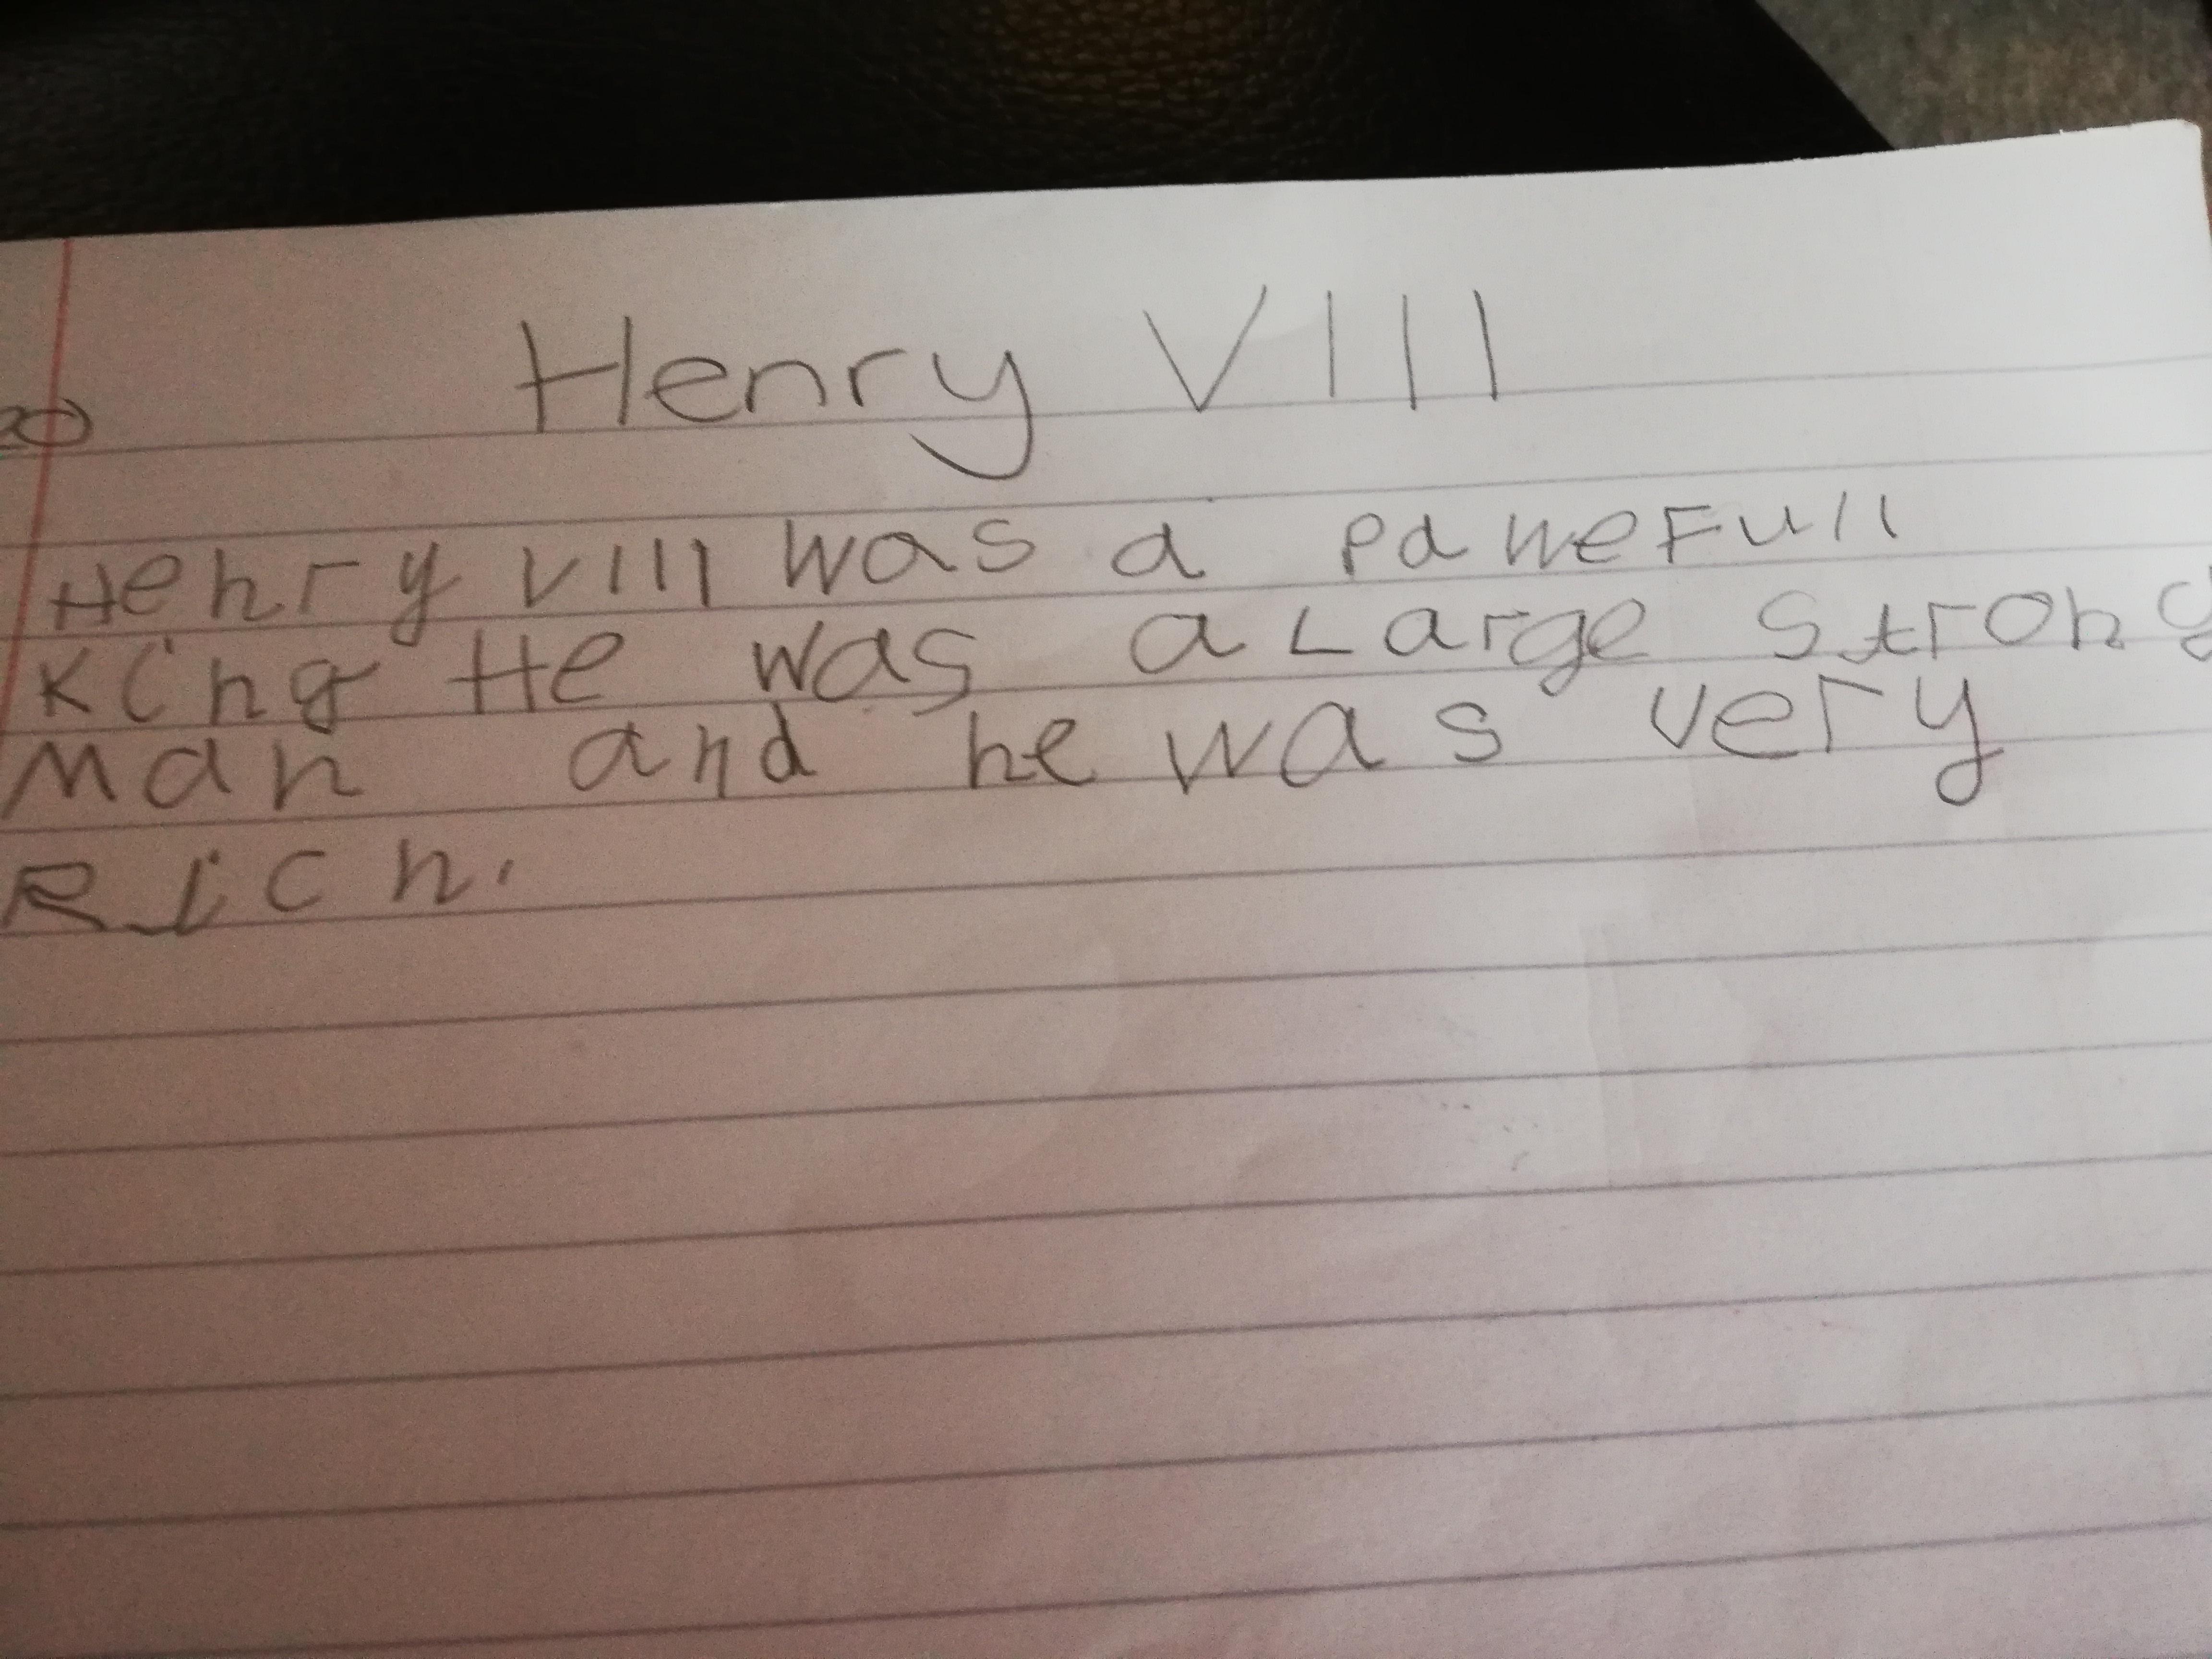 Henry VIII
Henry VIII was a pawefull
King He was a Large strong
Man and he was very
Rich.